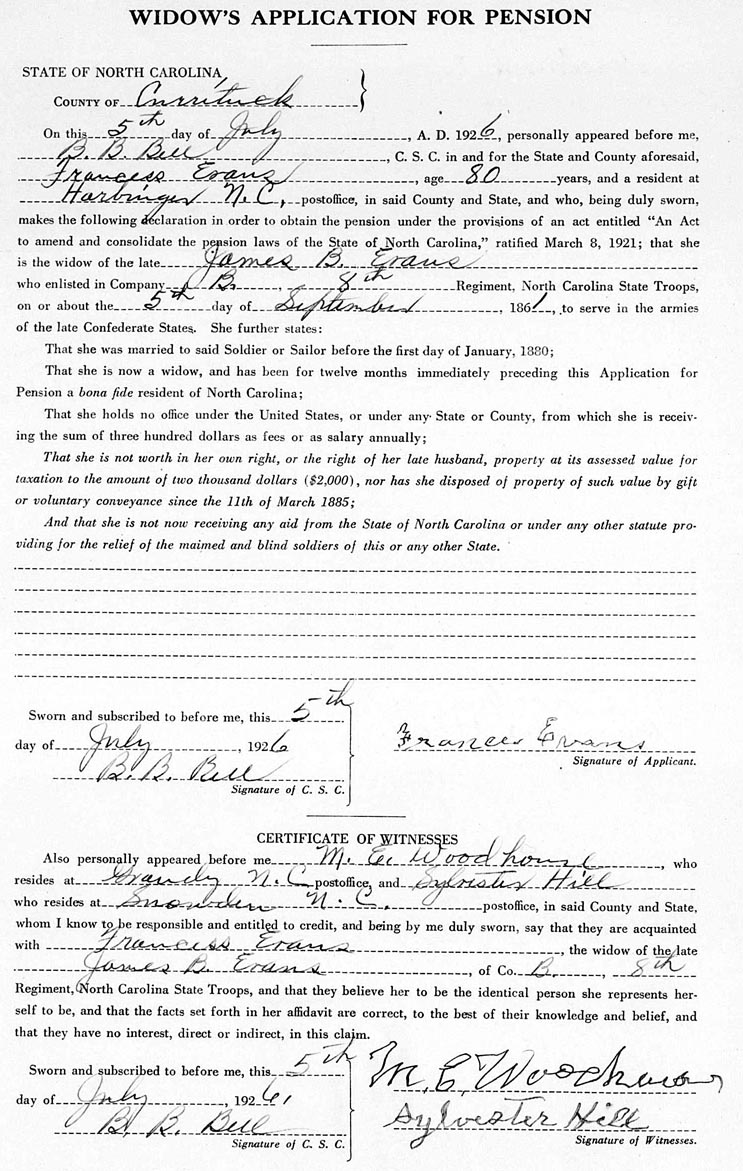 WIDOW'S APPLICATION FOR PENSION
STATE OF NORTH CAROLINA,
COUNTY OF Currituck
On this 5th day of July, A. D. 1926, personally appeared before me,
B. B. Bell, C. S. C. in and for the State and County aforesaid,
Francess Evans, age 80 years, and a resident at
Harbinger N.C., postoffice, in said County and State, and who, being duly sworn,
makes the following declaration in order to obtain the pension under the provisions of an act entitled "An Act
to amend and consolidate the pension laws of the State of North Carolina," ratified March 8, 1921; that she
is the widow of the late James B. Evans
who enlisted in Company B., 8th Regiment, North Carolina State Troops,
on or about the 5th day of September, 1861, to serve in the armies
of the late Confederate States. She further states:
That she was married to said Soldier or Sailor before the first day of January, 1880;
That she is now a widow, and has been for twelve months immediately preceding this Application for
Pension a bona fide resident of North Carolina;
That she holds no office under the United States, or under any State or County, from which she is receiv-
ing the sum of three hundred dollars as fees or as salary annually;
That she is not worth in her own right, or the right of her late husband, property at its assessed value for
taxation to the amount of two thousand dollars ($2,000), nor has she disposed of property of such value by gift
or voluntary conveyance since the 11th of March 1885;
And that she is not now receiving any aid from the State of North Carolina or under any other statute pro-
viding for the relief of the maimed and blind soldiers of this or any other State.
Sworn and subscribed to before me, this 5th
day of July, 1926
B. B. Bell
Signature of C. S. C.
Frances Evans
Signature of Applicant.
CERTIFICATE OF WITNESSES
Also personally appeared before me M. E. Woodhouse, who
resides at Grandy N. C. postoffice, and Sylvester Hill
who resides at Snowden N. C. postoffice, in said County and State,
whom I know to be responsible and entitled to credit, and being by me duly sworn, say that they are acquainted
with Francess Evans, the widow of the late
James B. Evans, of Co. B., 8th
Regiment, North Carolina State Troops, and that they believe her to be the identical person she represents her-
self to be, and that the facts set forth in her affidavit are correct, to the best of their knowledge and belief, and
that they have no interest, direct or indirect, in this claim.
Sworn and subscribed to before me, this 5th
day of July, 1926,
B. B. Bell
Signature of C. S. C.
M. E. Woodhouse
Sylvester Hill
Signature of Witnesses.